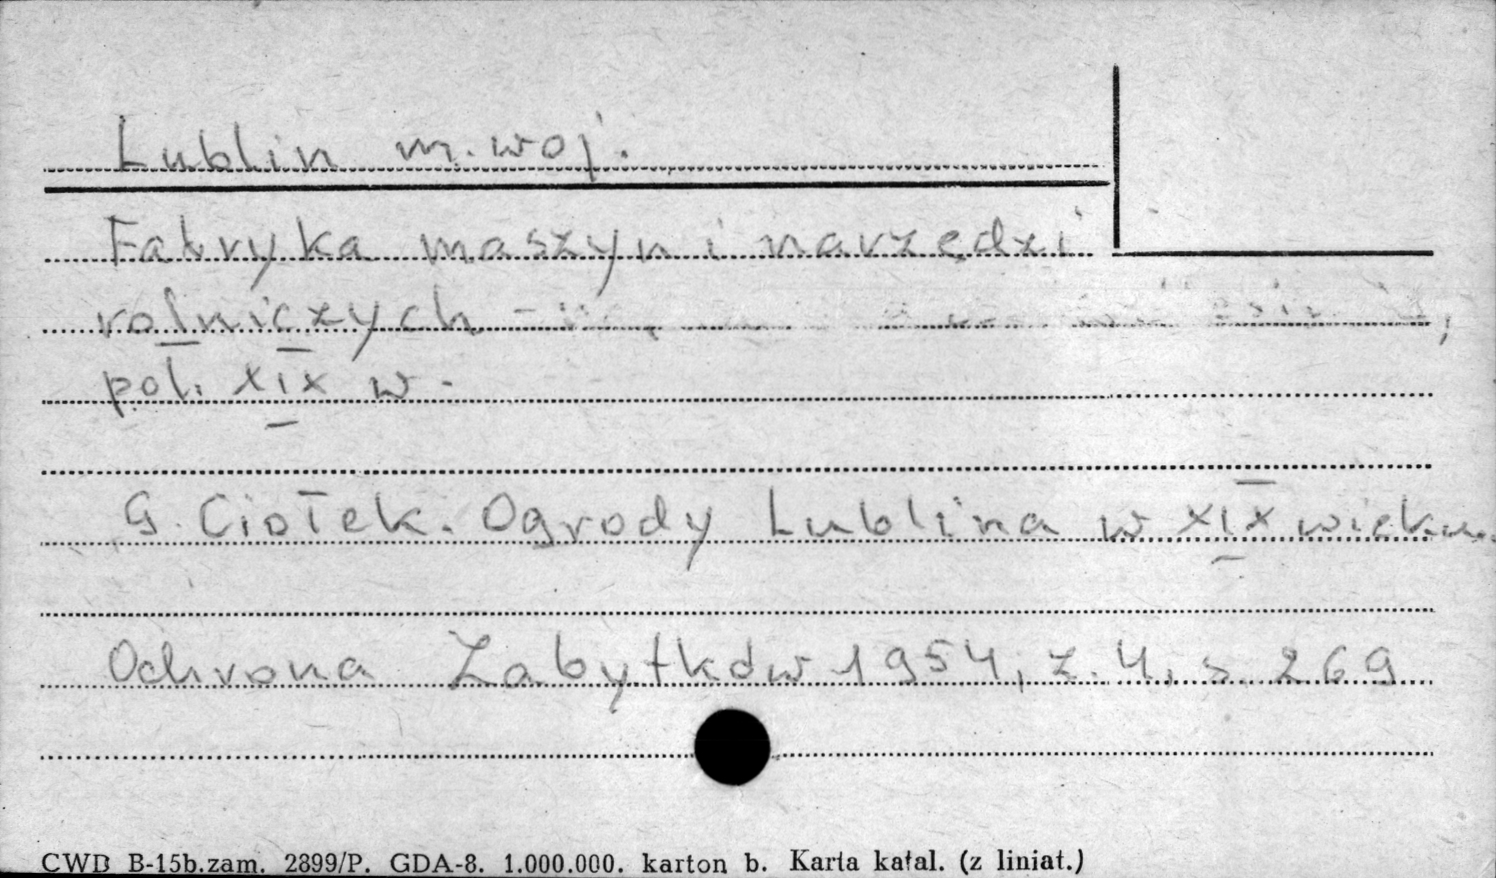 Lublin m. woj.
Fabryka maszyn i narzędzi
rolniczych -
poł. XIX w.
G. Ciołek. Ogrody Lublina w XIX wieku.
Ochrona Zabytków 1954, z. 4, s. 269
CWD B-15b.zam. 2899/P. GDA-8. 1.000.000. karton b. Karta katal. (z liniat.)